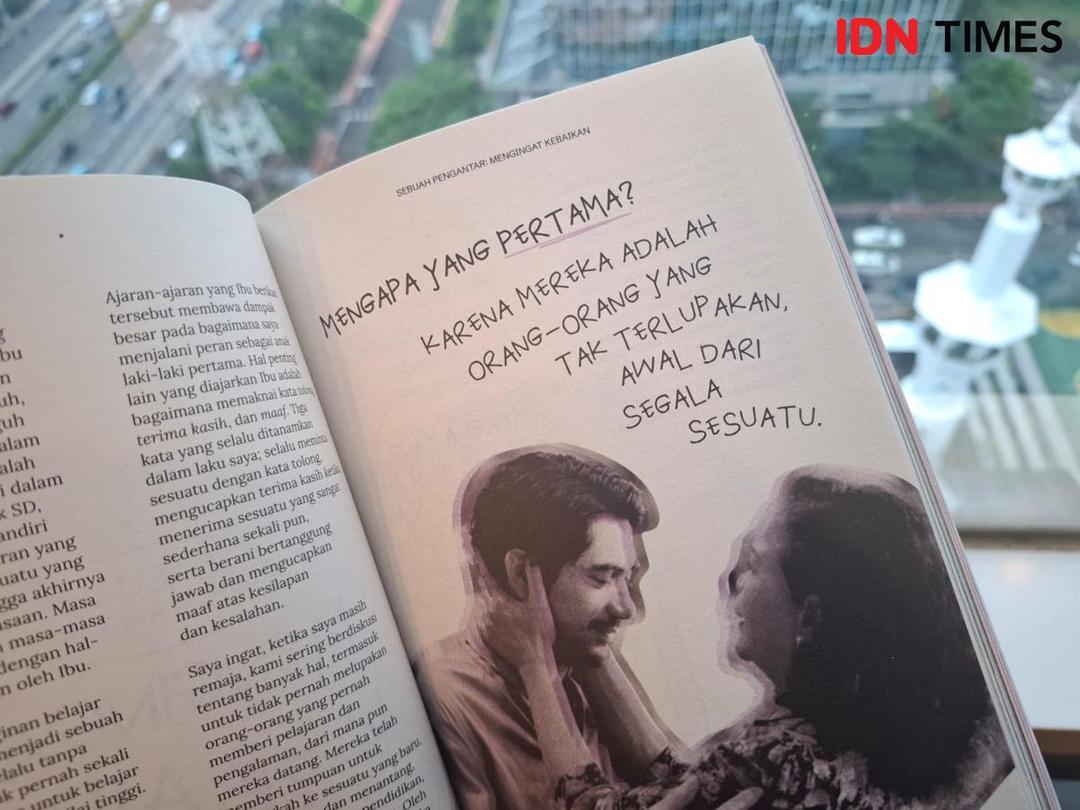 IDN TIMES
bu
uh,
guh
alam
alah
i dalam
k SD,
andiri
ran yang
uatu yang
gga akhirnya
asaan. Masa
masa-masa
dengan hal-
n oleh Ibu.
ginan belajar
menjadi sebuah
elalu tanpa
k pernah sekali
untuk belajar
tinggi.
Ajaran-ajaran yang Ibu berikan
tersebut membawa dampak
besar pada bagaimana saya
menjalani peran sebagai anak
laki-laki pertama. Hal penting
lain yang diajarkan Ibu adalah
bagaimana memaknai kata tolong,
terima kasih, dan maaf. Tiga
kata yang selalu ditanamkan
dalam laku saya; selalu meminta
sesuatu dengan kata tolong,
mengucapkan terima kasih ketika
menerima sesuatu yang sangat
sederhana sekali pun,
serta berani bertanggung
jawab dan mengucapkan
maaf atas kesilapan
dan kesalahan.
Saya ingat, ketika saya masih
remaja, kami sering berdiskusi
tentang banyak hal, termasuk
untuk tidak pernah melupakan
orang-orang yang pernah
memberi pelajaran dan
pengalaman, dari mana pun
mereka datang. Mereka telah
memberi tumpuan untuk
kah ke sesuatu yang baru,
dan menantang,
pendidikan,
Oleh
SEBUAH PENGANTAR: MENGINGAT KEBAIKAN
MENGAPA YANG PERTAMA?
KARENA MEREKA ADALAH
ORANG-ORANG YANG
TAK TERLUPAKAN,
AWAL DARI
SEGALA
SESUATU.